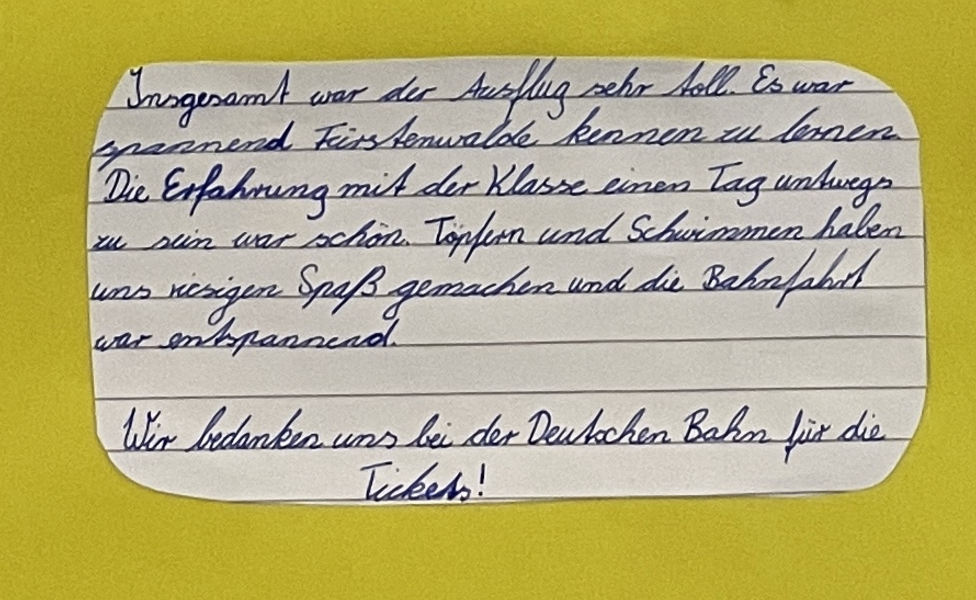 Insgesamt war der Ausflug sehr toll. Es war
spannend Fürstenwalde kennen zu lernen.
Die Erfahrung mit der Klasse einen Tag untwegs
zu sein war schön. Töpfern und Schwimmen haben
uns riesigen Spaß gemachen und die Bahnfahrt
war entspannend.
Wir bedanken uns bei der Deutschen Bahn für die
Tickets!